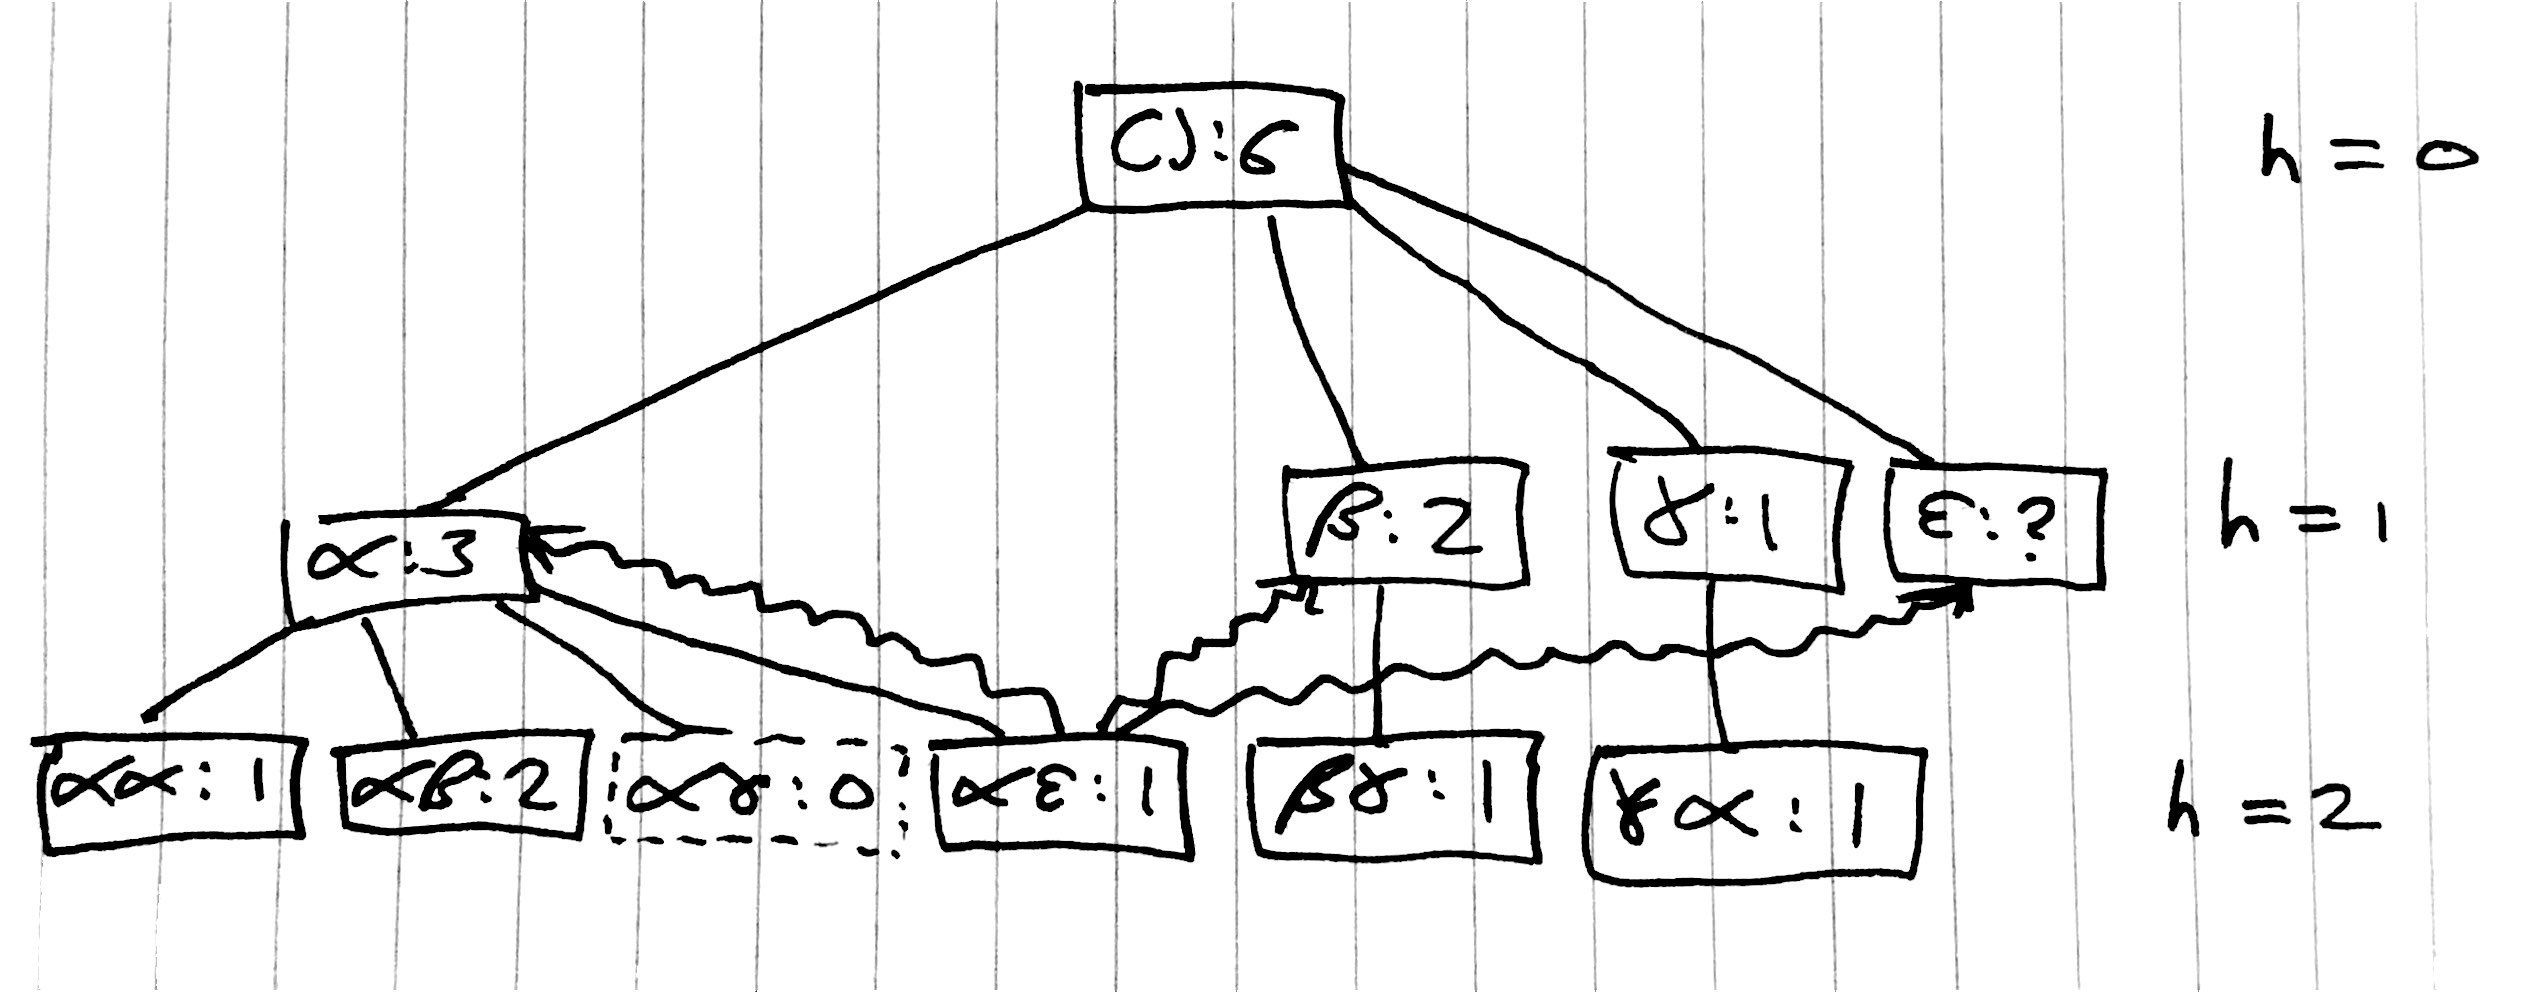 ():6
h = 0
α:3
β:2
γ:1
ε:?
h = 1
αα:1
αβ:2
αγ:0
αε:1
βγ:1
γα:1
h = 2